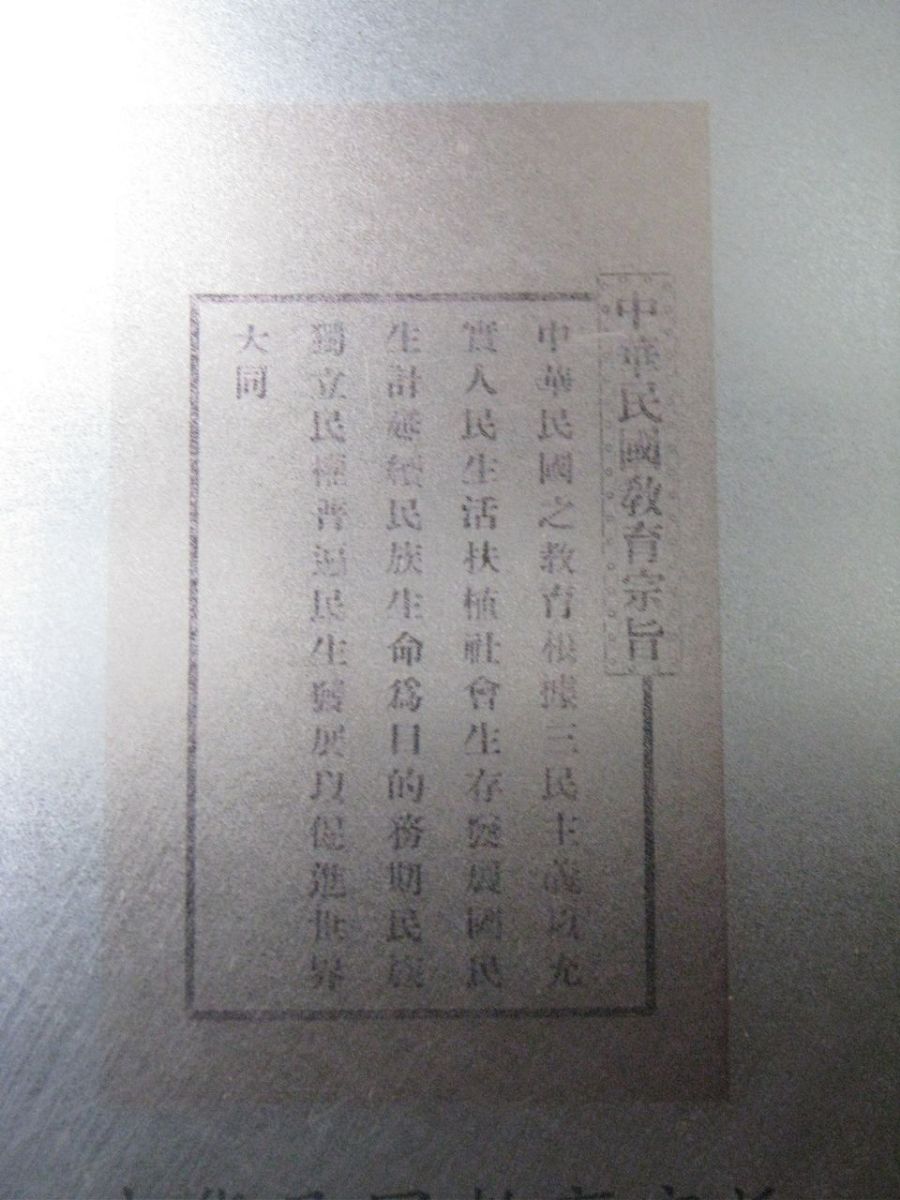 中華民國教育宗旨
中華民國之教育根據三民主義以充
實人民生活扶植社會生存發展國民
生計延續民族生命為目的務期民族
獨立民權普遍民生發展以促進世界
大同